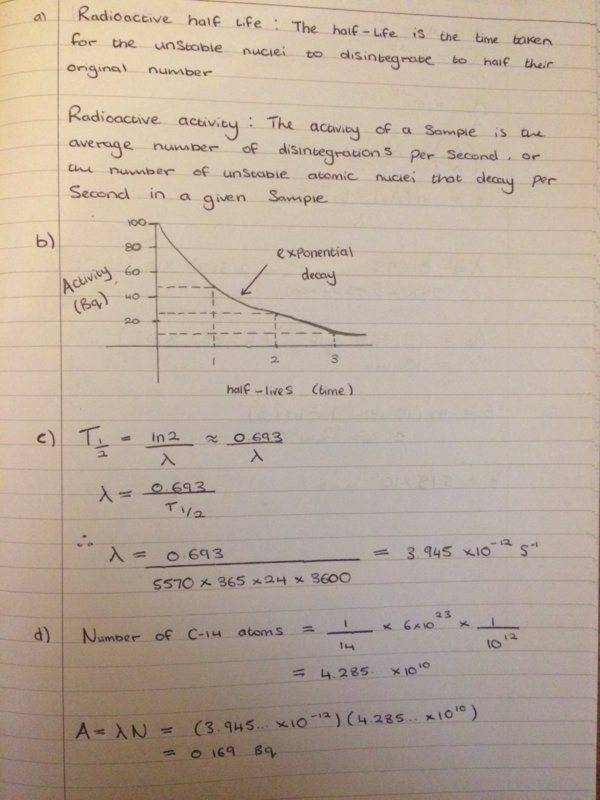 a) Radioactive half life : The half-life is the time taken
for the unstable nuclei to disintegrate to half their
original number
Radioactive activity : The activity of a sample is the
average number of disintegrations per second, or
the number of unstable atomic nuclei that decay per
second in a given sample
b)
100
80
60
40
20
Activity
(Bq)
exponential
decay
1 2 3
half-lives (time)
c) T1/2 = ln2/λ ≈ 0.693/λ
λ = 0.693/T1/2
∴ λ = 0.693/(5570 × 365 × 24 × 3600) = 3.945 × 10⁻¹² s⁻¹
d) Number of C-14 atoms = 1/14 × 6×10²³ × 1/10¹²
= 4.285... × 10¹⁰
A = λN = (3.945... × 10⁻¹²)(4.285... × 10¹⁰)
= 0.169 Bq